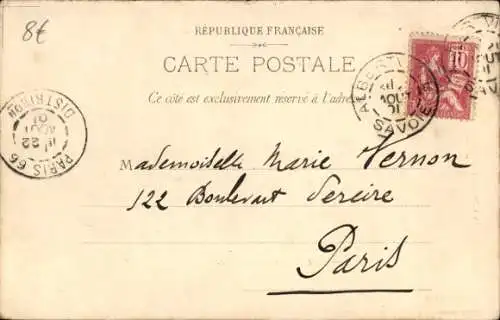 8€
RÉPUBLIQUE FRANÇAISE
CARTE POSTALE
Ce côté est exclusivement réservé à l'adresse
10
ALBERTV
AOUT
01
SAVOIE
PARIS 66
22
AOUT
01
DISTRIBON
Mademoiselle Marie Vernon
122 Boulevart Pereire
Paris